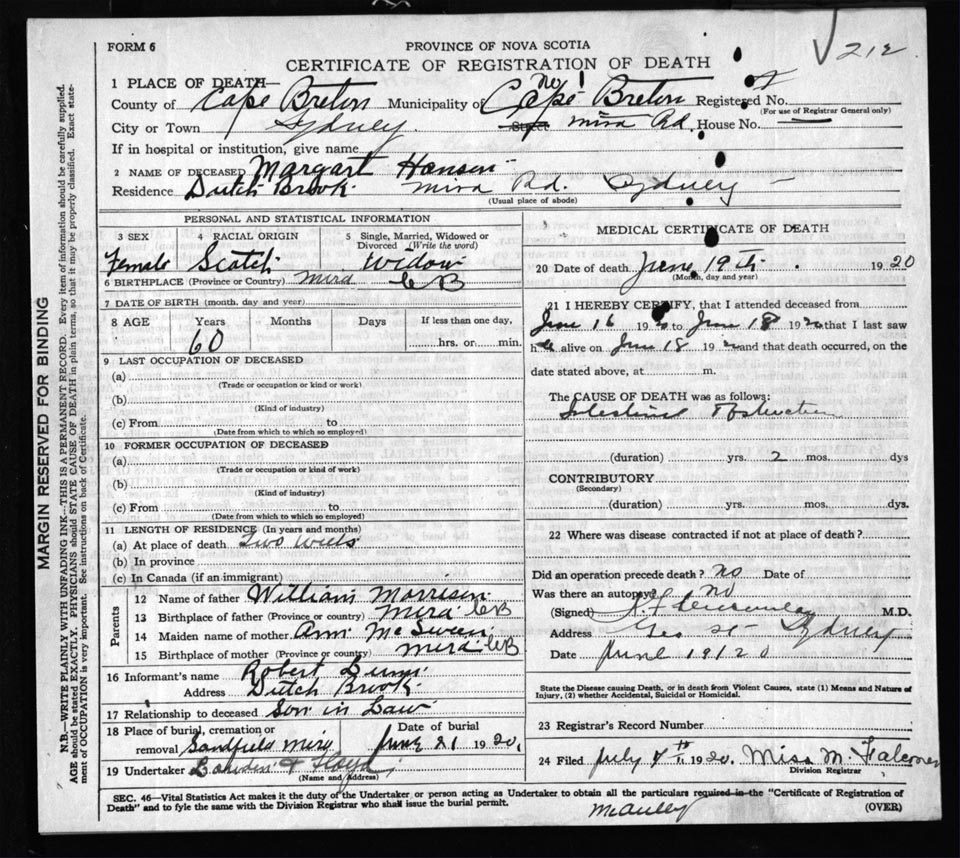 212
FORM 6
PROVINCE OF NOVA SCOTIA
CERTIFICATE OF REGISTRATION OF DEATH
1 PLACE OF DEATH—
County of Cape Breton Municipality of Cape Breton No 1 Registered No.
(For use of Registrar General only)
City or Town Sydney Street Mira Rd. House No. —
If in hospital or institution, give name
2 NAME OF DECEASED Margart Hansen
Residence Dutch Brook Mira Rd. Sydney
(Usual place of abode)
PERSONAL AND STATISTICAL INFORMATION
3 SEX 4 RACIAL ORIGIN 5 Single, Married, Widowed or Divorced (Write the word)
Female Scotch Widow
6 BIRTHPLACE (Province or Country) Mira CB
7 DATE OF BIRTH (month, day and year)
8 AGE Years Months Days If less than one day,
60 hrs. or min.
9 LAST OCCUPATION OF DECEASED
(a)
(Trade or occupation or kind or work)
(b)
(Kind of industry)
(c) From to
(Date from which to which so employed)
10 FORMER OCCUPATION OF DECEASED
(a)
(Trade or occupation or kind of work)
(b)
(Kind of industry)
(c) From to
(Date from which to which so employed)
11 LENGTH OF RESIDENCE (In years and months)
(a) At place of death Two
(b) In province
(c) In Canada (if an immigrant)
Parents
12 Name of father William Morrison
13 Birthplace of father (Province or country) Mira CB
14 Maiden name of mother Ann McSween
15 Birthplace of mother (Province or country) Mira CB
16 Informant's name Robert
Address Dutch Brook
17 Relationship to deceased Son in Law
18 Place of burial, cremation or Date of burial
removal Sandfield Mira June 21 1920,
19 Undertaker & Floyd
(Name and Address)
MEDICAL CERTIFICATE OF DEATH
20 Date of death June 19th 1920
(Month, day and year)
21 I HEREBY CERTIFY, that I attended deceased from
June 16 1920 to June 18 1920 that I last saw
h alive on June 18 1920 and that death occurred, on the
date stated above, at m.
The CAUSE OF DEATH was as follows:
Intestinal Obstruction
(duration) yrs. 2 mos. dys
CONTRIBUTORY
(Secondary)
(duration) yrs. mos. dys.
22 Where was disease contracted if not at place of death?
Did an operation precede death? No Date of
Was there an autopsy? No
(Signed) M.D.
Address Geo St Sydney
Date June 19/20
State the Disease causing Death, or in death from Violent Causes, state (1) Means and Nature of
Injury, (2) whether Accidental, Suicidal or Homicidal.
23 Registrar's Record Number
24 Filed July 7th 1920. Miss M.
Division Registrar
SEC. 46—Vital Statistics Act makes it the duty of the Undertaker or person acting as Undertaker to obtain all the particulars required in the "Certificate of Registration of
Death" and to fyle the same with the Division Registrar who shall issue the burial permit.
(OVER)
MARGIN RESERVED FOR BINDING
N.B.—WRITE PLAINLY WITH UNFADING INK—THIS IS A PERMANENT RECORD. Every item of information should be carefully supplied.
AGE should be stated EXACTLY. PHYSICIANS should STATE CAUSE OF DEATH in plain terms, so that it may be properly classified. Exact state-
ment of OCCUPATION is very important. See instructions on back of Certificate.